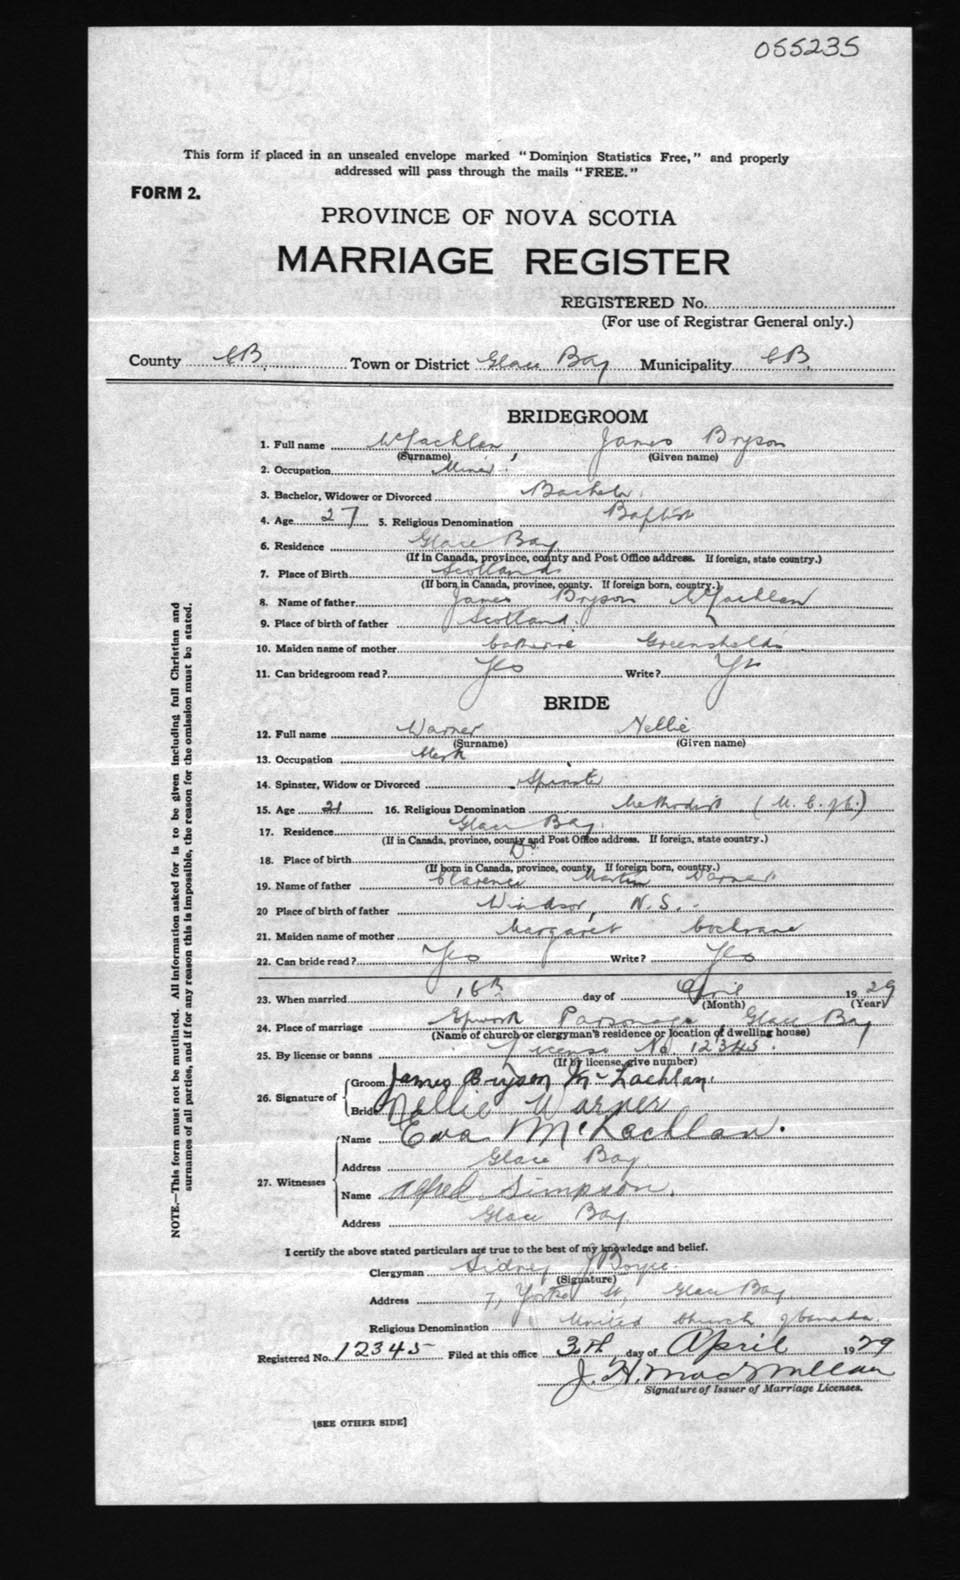 055235
This form if placed in an unsealed envelope marked "Dominion Statistics Free," and properly
addressed will pass through the mails "FREE."
FORM 2.
PROVINCE OF NOVA SCOTIA
MARRIAGE REGISTER
REGISTERED No.
(For use of Registrar General only.)
County CB. Town or District Glace Bay Municipality CB.
BRIDEGROOM
1. Full name McLachlan, James Bryson
(Surname) (Given name)
2. Occupation Miner.
3. Bachelor, Widower or Divorced Bachelor.
4. Age 27 5. Religious Denomination Baptist
6. Residence Glace Bay
(If in Canada, province, county and Post Office address. If foreign, state country.)
7. Place of Birth Scotland
(If born in Canada, province, county. If foreign born, country.)
8. Name of father James Bryson McLachlan
9. Place of birth of father Scotland.
10. Maiden name of mother Catherine Greenshelds
11. Can bridegroom read? Yes Write? Yes
BRIDE
12. Full name Warner Nellie
(Surname) (Given name)
13. Occupation Clerk
14. Spinster, Widow or Divorced Spinster
15. Age 21 16. Religious Denomination Methodist (U. C. of C.)
17. Residence Glace Bay.
(If in Canada, province, county and Post Office address. If foreign, state country.)
18. Place of birth Do
(If born in Canada, province, county. If foreign born, country.)
19. Name of father Clarence Martin Warner
20 Place of birth of father Windsor, N.S.
21. Maiden name of mother Margaret Cochrane
22. Can bride read? Yes Write? Yes
23. When married 16th day of April 1929
(Month) (Year)
24. Place of marriage Epworth Parsonage, Glace Bay
(Name of church or clergyman's residence or location of dwelling house)
25. By license or banns License No. 12345.
(If by license, give number)
26. Signature of Groom James Bryson McLachlan.
Bride Nellie Warner
27. Witnesses Name Eva McLachlan.
Address Glace Bay
Name Alfred Simpson.
Address Glace Bay
I certify the above stated particulars are true to the best of my knowledge and belief.
Clergyman Sidney J Boyce.
(Signature)
Address 7, St, Glace Bay
Religious Denomination United Church of Canada.
Registered No. 12345 Filed at this office 3th day of April 1929
J. H. MacMillan
Signature of Issuer of Marriage Licenses.
[SEE OTHER SIDE]
NOTE.—This form must not be mutilated. All information asked for is to be given including full Christian and
surnames of all parties, and if for any reason this is impossible, the reason for the omission must be stated.